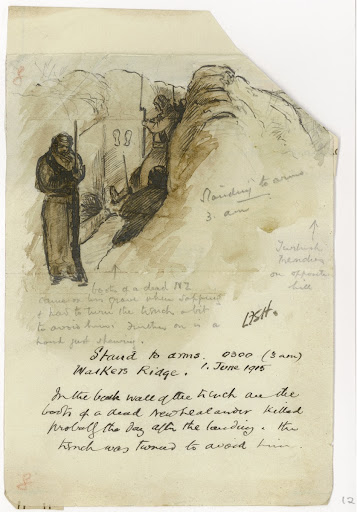 8
Standing to arms
3. am
Turkish
trenches
on opposite
hill
boots of a dead NZ
came on his grave when sapping
& had to turn the trench a bit
to avoid him. Further on is a
hand just showing.
LFSH.
Stand to arms. 0300 (3 am)
Walkers Ridge. 1. June 1915
In the back wall of the trench are the
boots of a dead New Zealander killed
probably the day after the landing. The
trench was turned to avoid him.
8
12